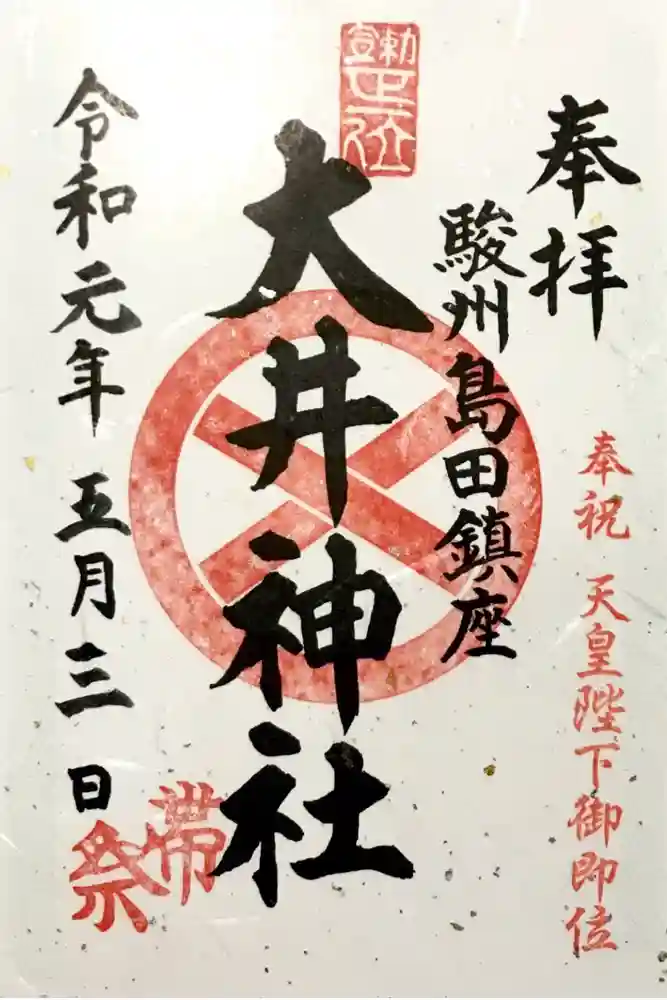 奉拝
奉祝 天皇陛下御即位
駿州島田鎮座
大井神社
帯祭
令和元年 五月三日